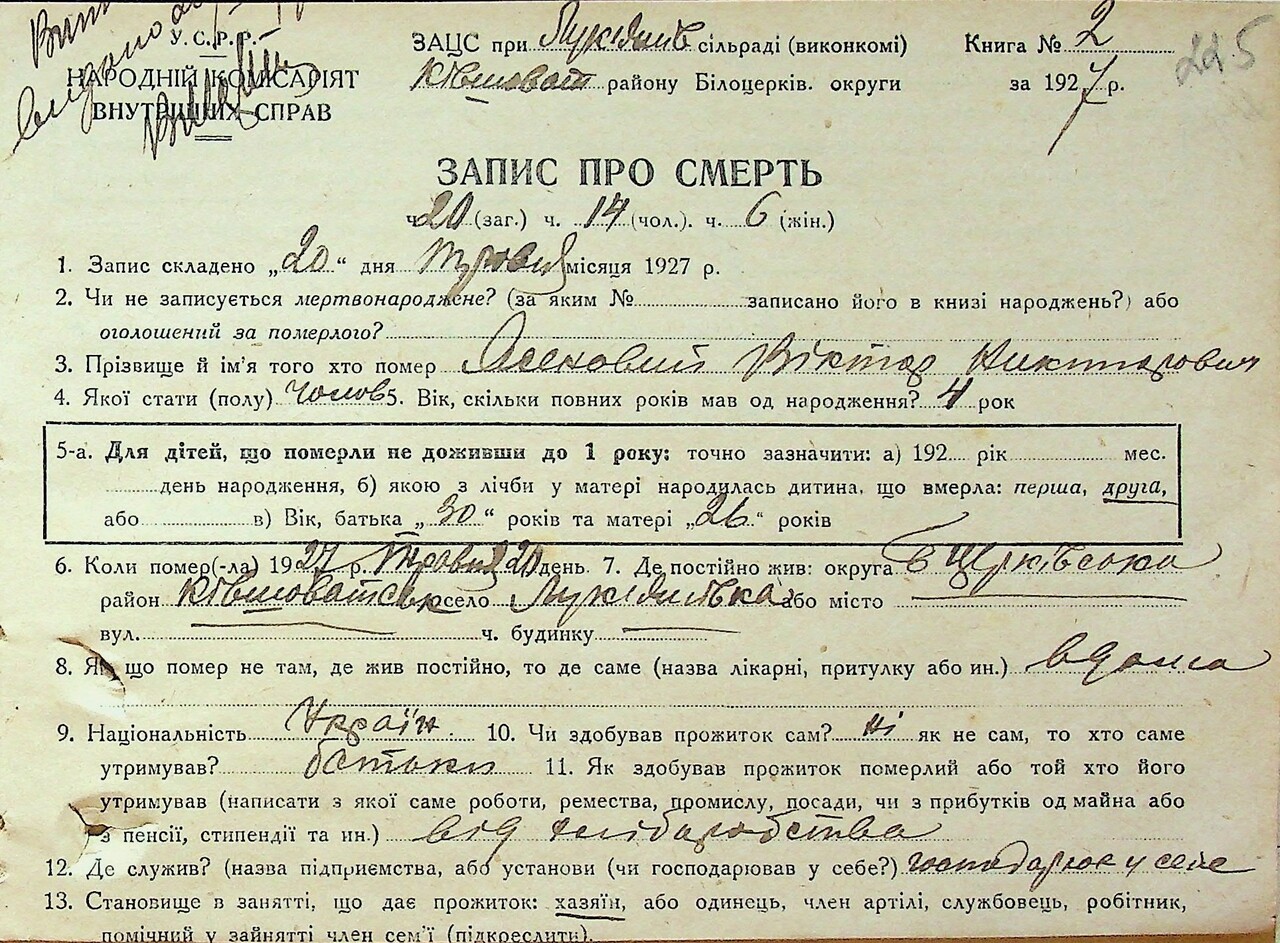 У. С. Р. Р.
НАРОДНІЙ КОМІСАРІЯТ
ВНУТРІШНІХ СПРАВ
ЗАЦС при Лукіянів сільраді (виконкомі)
Ківшоват району Білоцерків. округи
Книга № 2
за 1927 р.
225
ЗАПИС ПРО СМЕРТЬ
ч. 20 (заг.) ч. 14 (чол.). ч. 6 (жін.)
1. Запис складено „20“ дня Травня місяця 1927 р.
2. Чи не записується мертвонароджене? (за яким № записано його в книзі народжень?) або
оголошений за померлого?
3. Прізвище й ім'я того хто помер Віктор Никторович
4. Якої стати (полу) чолов 5. Вік, скільки повних років мав од народження? 4 рок
5-а. Для дітей, що померли не доживши до 1 року: точно зазначити: а) 192 рік мес.
день народження, б) якою з лічби у матері народилась дитина, що вмерла: перша, друга,
або в) Вік, батька „30“ років та матері „26“ років
6. Коли помер(-ла) 1927 р. Травня 20 день 7. Де постійно жив: округа Б Церківська
район Ківшоватськ село Лукіянівка або місто
вул. ч. будинку
8. Якщо помер не там, де жив постійно, то де саме (назва лікарні, притулку або ин.) вдома
9. Національність Україн. 10. Чи здобував прожиток сам? ні як не сам, то хто саме
утримував? батьки 11. Як здобував прожиток померлий або той хто його
утримував (написати з якої саме роботи, ремества, промислу, посади, чи з прибутків од майна або
з пенсії, стипендії та ин.) від хліборобства
12. Де служив? (назва підприємства, або установи (чи господарював у себе?) господарює у себе
13. Становище в занятті, що дає прожиток: хазяїн, або одинець, член артілі, службовець, робітник,
помічний у зайнятті член сем'ї (підкреслити).